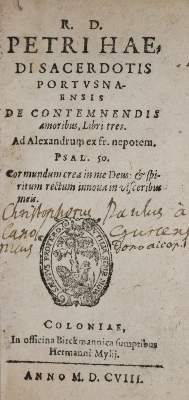 R. D.
PETRI HAE,
DI SACERDOTIS
PORTVSNA-
ENSIS
DE CONTEMNENDIS
amoribus, Libri tres.
Ad Alexandrum ex fr. nepotem.
PSAL. 50.
Cor mundum crea in me Deus: & spi-
ritum rectum innoua in visceribus
meis.
Christophorus Paulus à
COLONIAE,
In officina Birckmannica sumptibus
Hermanni Mylij.
ANNO M. D. CVIII.